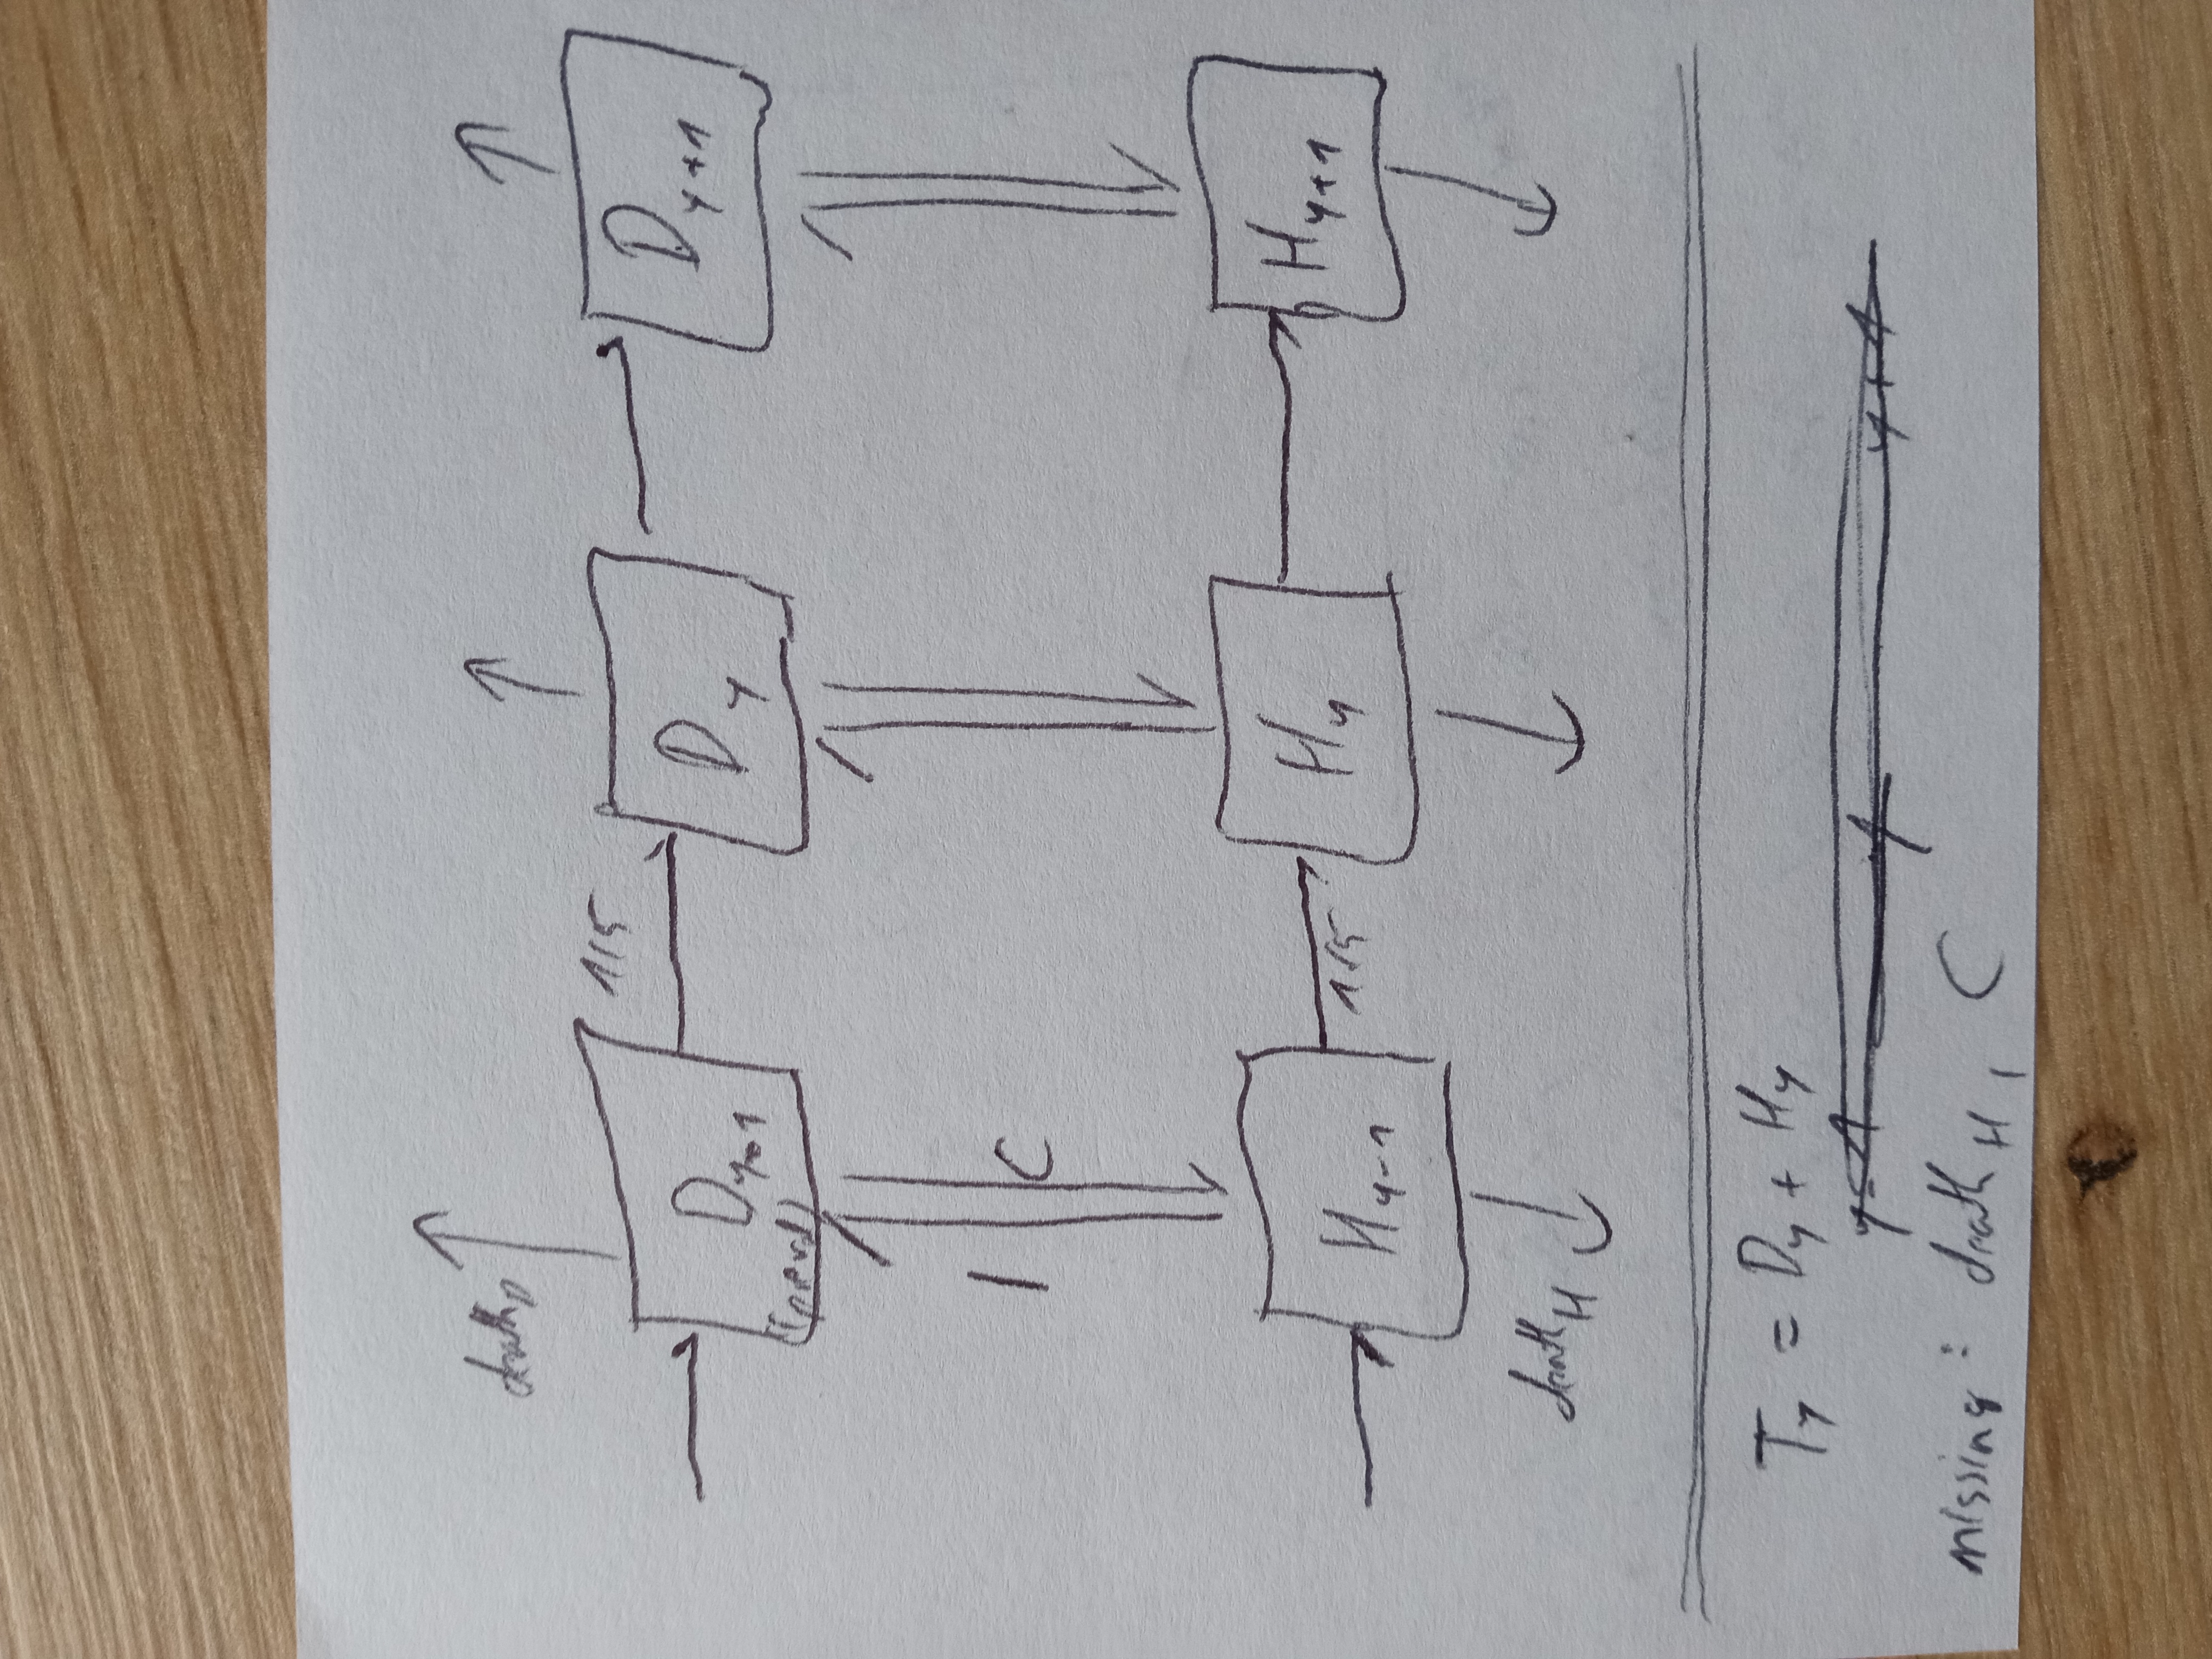 death_D
1/5
D_y-1
D_y
D_y+1
I
C
H_y-1
1/5
H_y
H_y+1
death_H
T_y = D_y + H_y
y-1 y y+1
missing: death_H, C